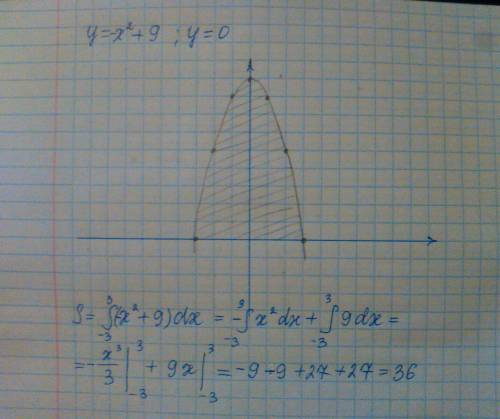 y=-x²+9 ; y=0
S= ∫₋₃³(-x²+9)dx = -∫₋₃³ x²dx + ∫₋₃³ 9dx =
= -x³/3 |₋₃³ + 9x |₋₃³ = -9-9+27+27=36